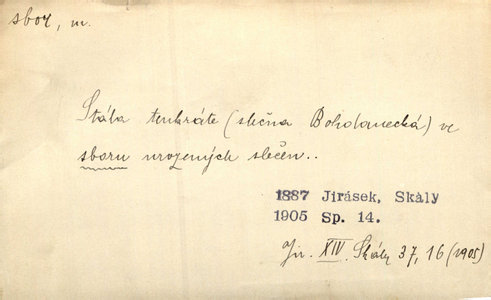 sbor, m.
Stála tenkráte (slečna Bohdanecká) ve
sboru urozených slečen..
1887 Jirásek, Skály
1905 Sp. 14.
Jir. XIV. Skály 37, 16 (1905)